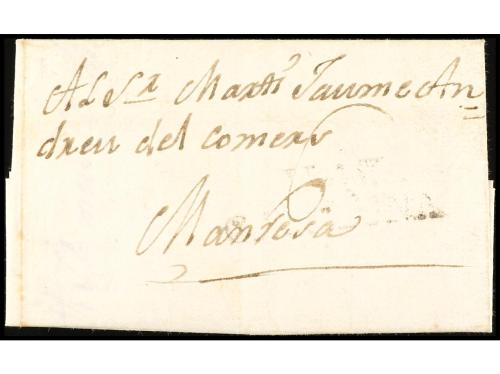 Al Sr. Martí Jaume An=
dreu del comers
Manresa